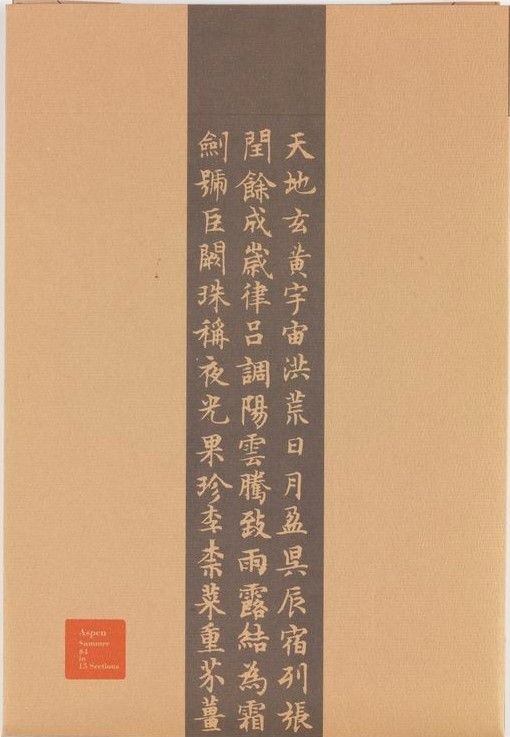 天地玄黃宇宙洪荒日月盈昃辰宿列張
閏餘成歲律呂調陽雲騰致雨露結為霜
劍號巨闕珠稱夜光果珍李柰菜重芥薑
Aspen
Summer
in
Sections